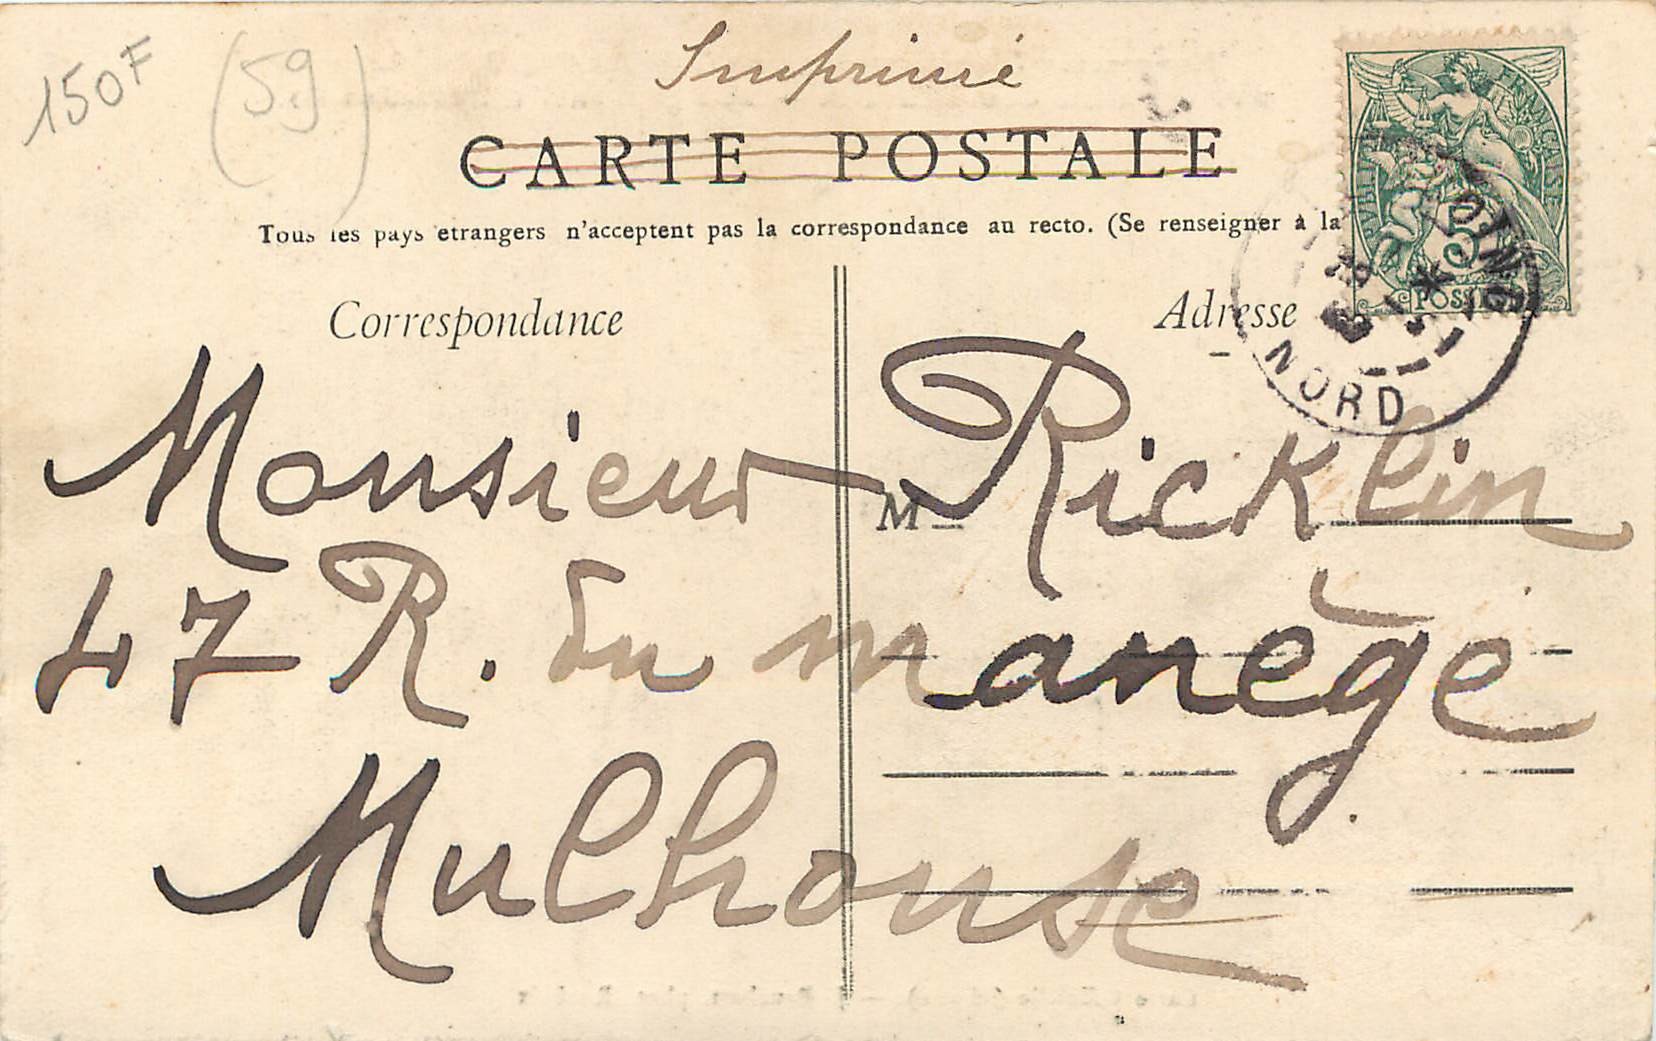 150F
(59)
Imprimé
CARTE POSTALE
Tous les pays etrangers n'acceptent pas la correspondance au recto. (Se renseigner à la
Correspondance
Adresse
FRANÇAISE
5
POSTES
NORD
Monsieur Ricklin
M
47 R. du manège
Mulhouse